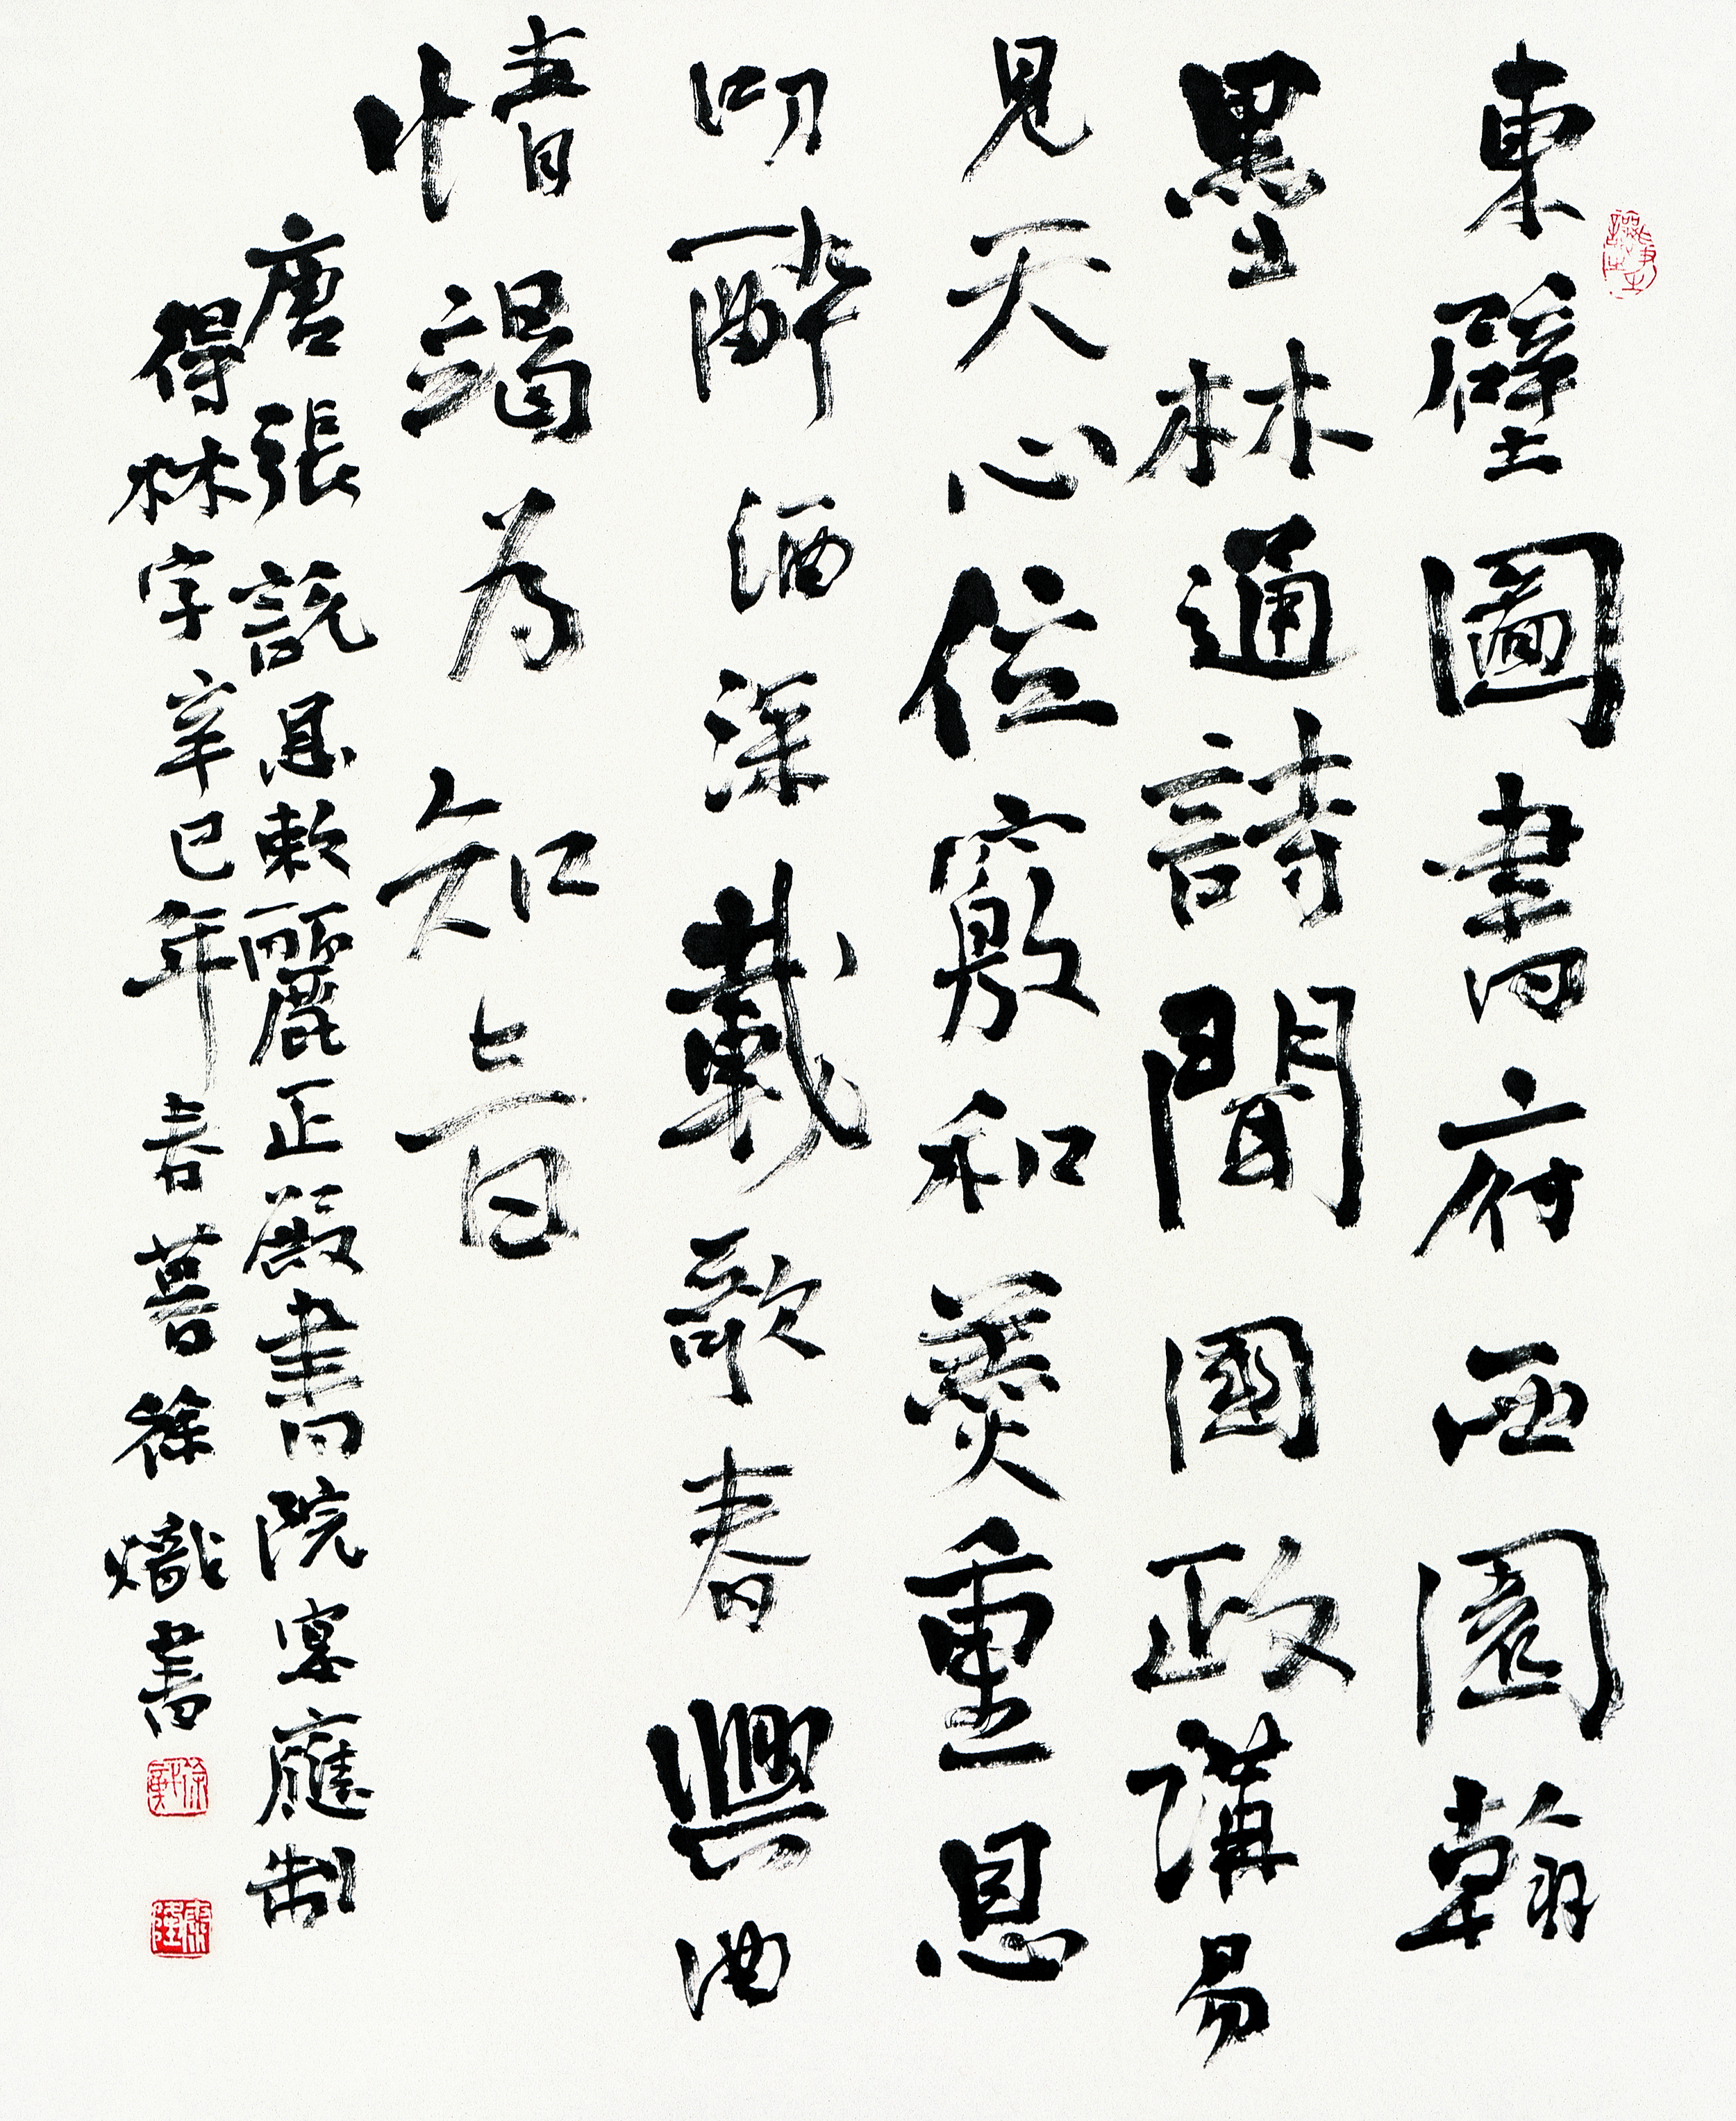 東壁圖書府西園翰
墨林通詩聞國政講易
見天心位竅和羹重恩
叨醉酒深載歌春興曲
情竭為知音
唐張說恩敕麗正殿書院宴應制
得林字辛巳年春暮徐熾書